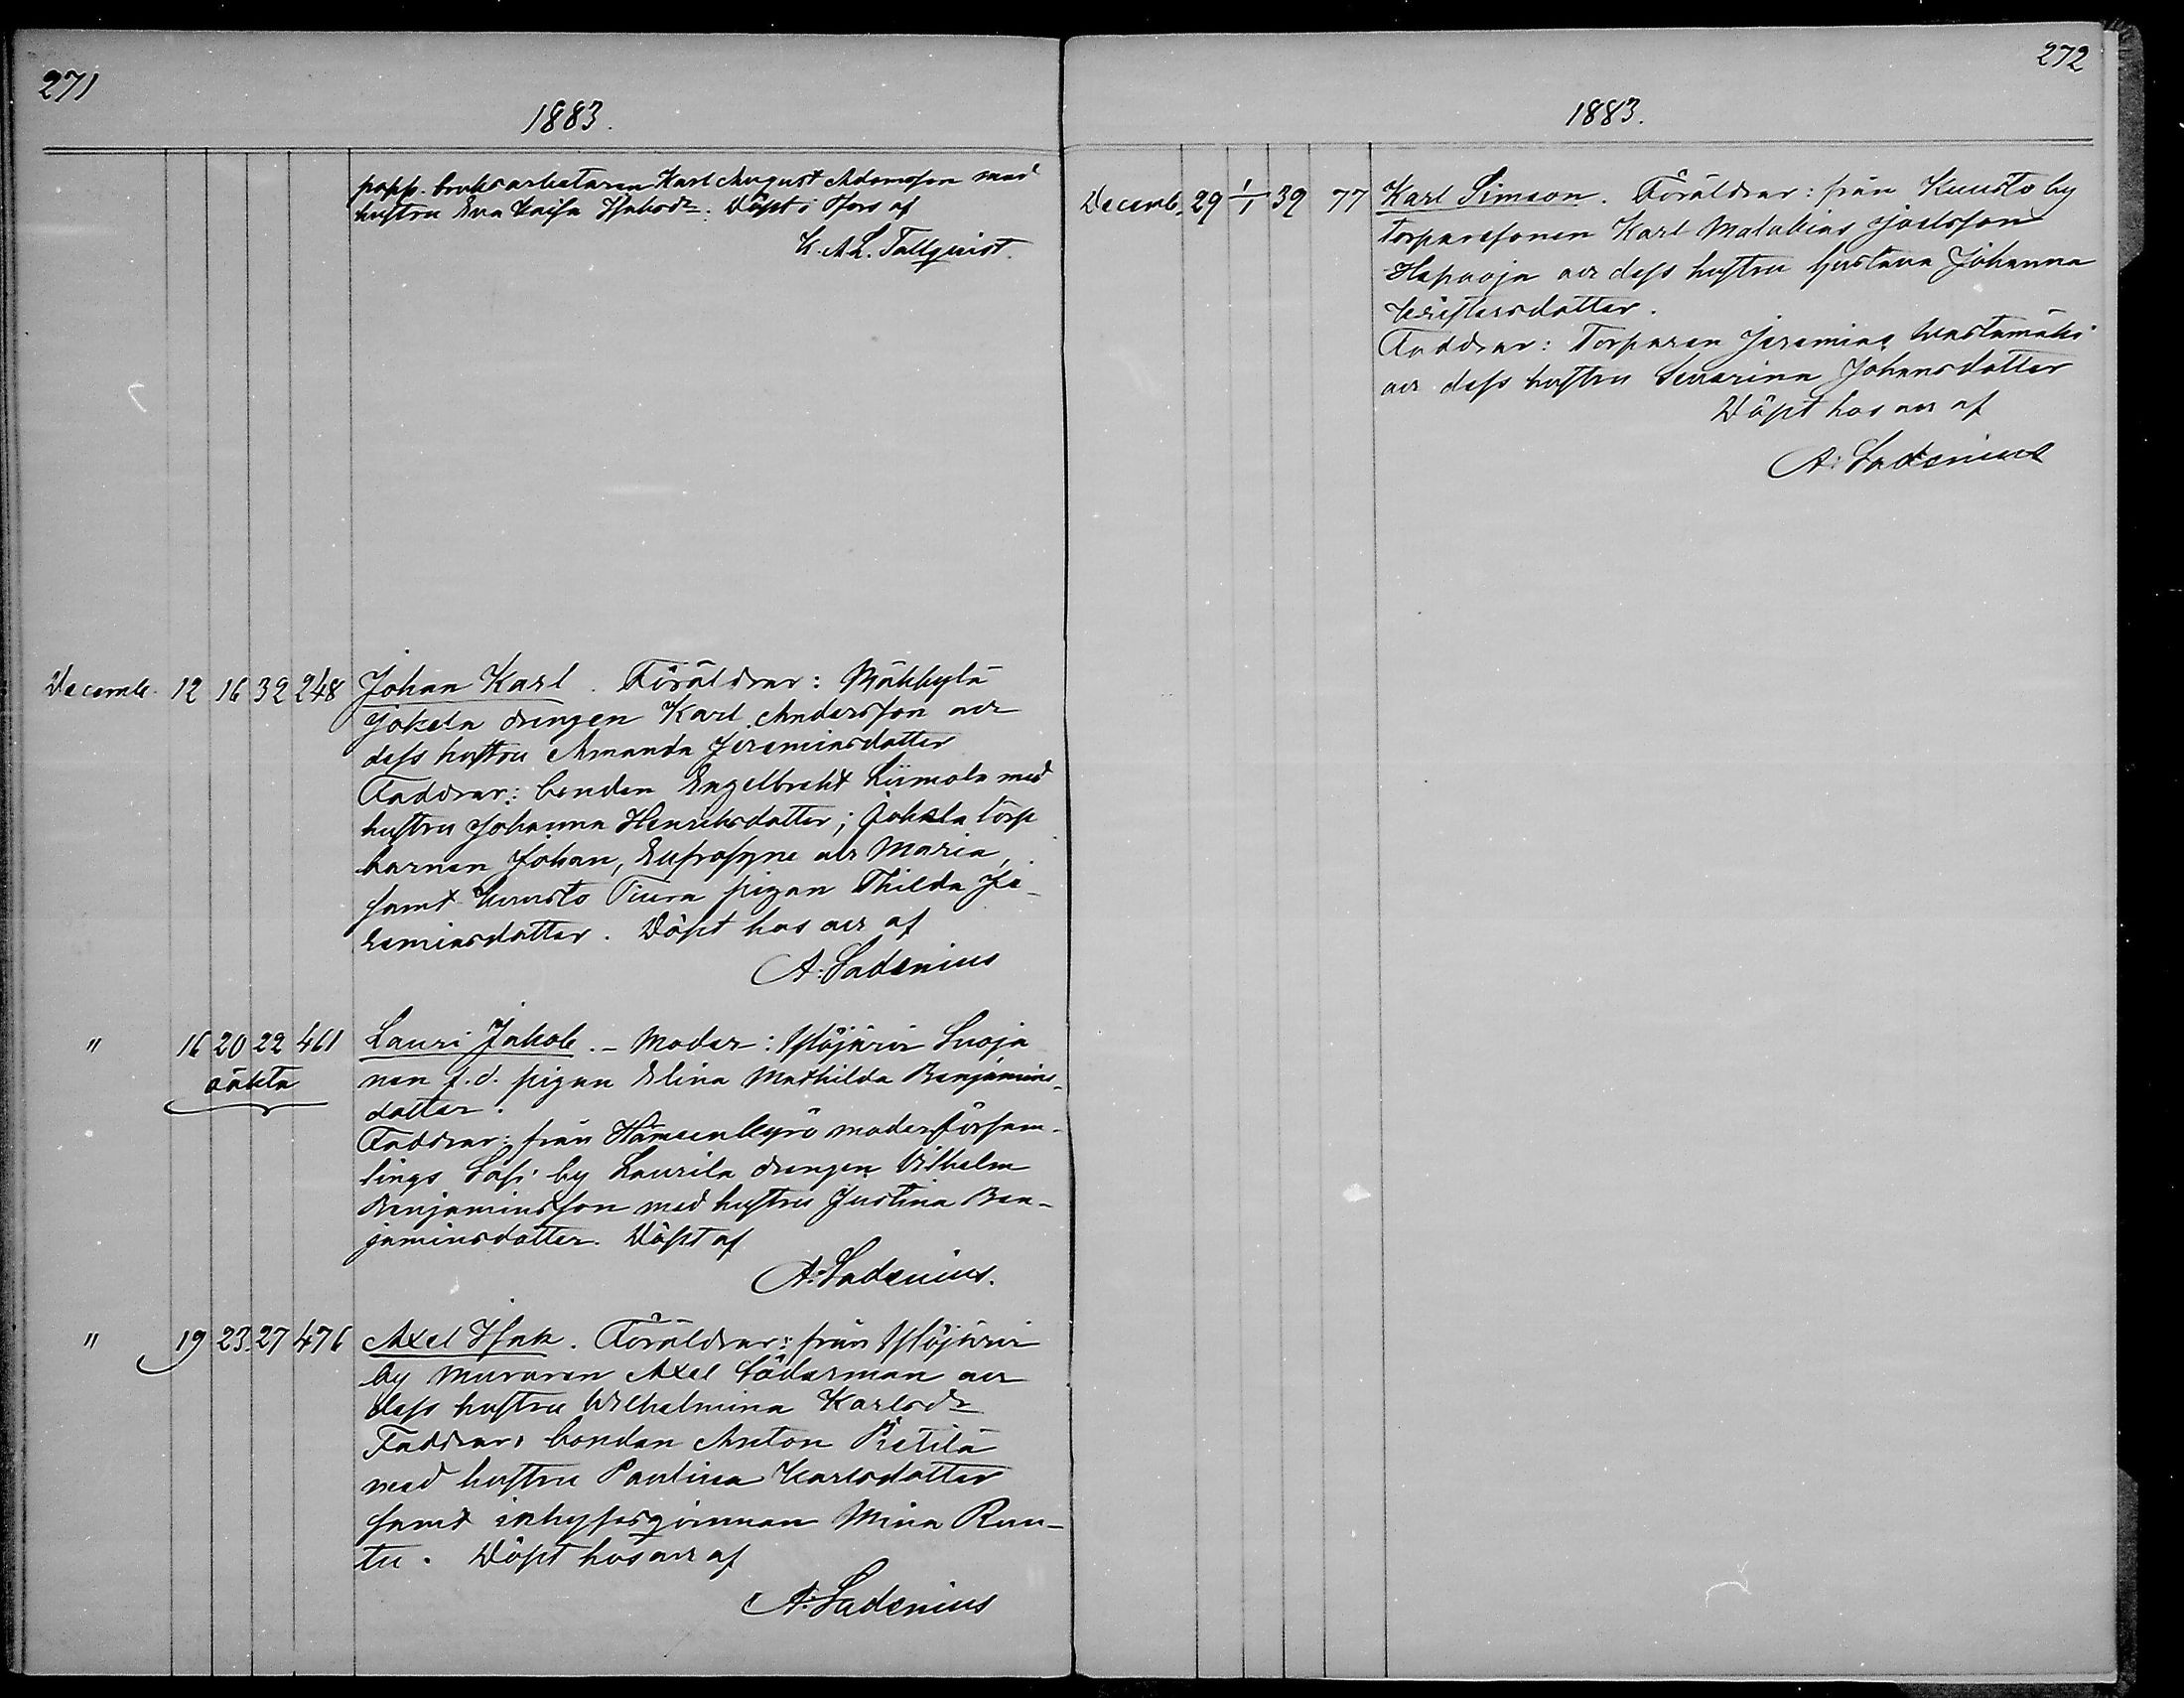 271
1883.
papp. bruksarbetaren Karl August Adamsson med
hustru Eva Kaisa Isaksdr. Döpt i Tfors af
K. A. L. Tallqvist.
Decemb. 12 16 32 248 Johan Karl. Föräldrar: Mäkkylä
Jokela drengen Karl Andersson och
dess hustru Amanda Jeremiasdotter
Faddrar: bonden Engelbrekt Liimola med
hustru Johanna Henriksdotter; Jokela torp
barnen Johan, Eufrosyne och Maria,
samt Kuusto Tiura pigan Thilda Je-
remiasdotter. Döpt hos oss af
A. Ladenius
" 16 20 22 461 Lauri Jakob. - Moder: Ylöjärvi Suoja
oäkta nen f.d. pigan Elina Mathilda Benjamins-
dotter.
Faddrar: från Hämeenkyrö moderförsam-
lings Sasi by Laurila drengen Vilhelm
Benjaminsson med hustru Justina Ben-
jaminsdotter. Döpt af
A. Ladenius.
" 19 23 27 476 Axel Isak. Föräldrar: från Ylöjärvi
by muraren Axel Söderman och
dess hustru Wilhelmina Karlsdr
Faddrar: bonden Anton Pietilä
med hustru Paulina Karlsdotter
samt inhysesqvinnan Mina Ran-
tu. Döpt hos oss af
A. Ladenius
272
1883.
Decemb. 29 1/1 39 77 Karl Simeon. Föräldrar: från Kuusto by
torparesonen Karl Malakias Joelsson
Hapaoja och dess hustru Gustava Johanna
Kristersdotter.
Faddrar: Torparen Jeremias Vastamäki
och dess hustru Severina Johansdotter
Döpt hos oss af
A. Ladenius